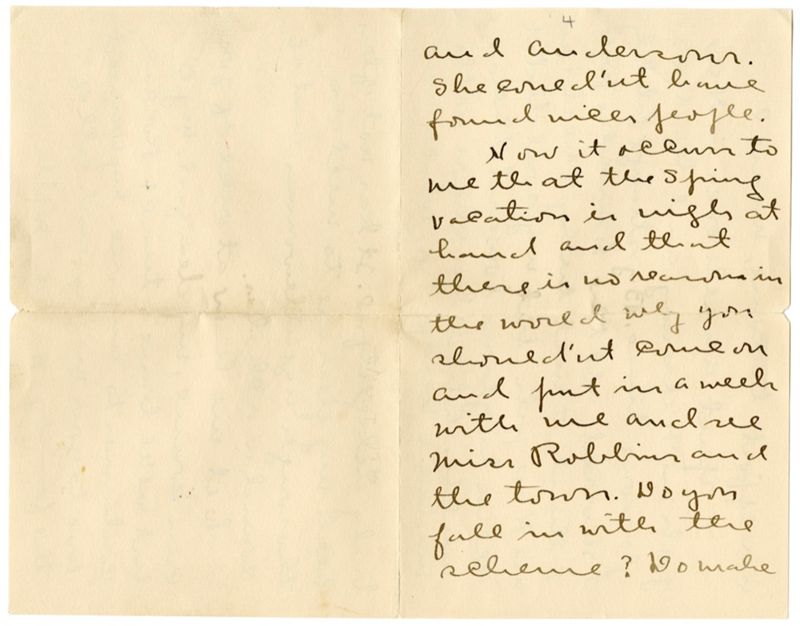 4
and Andersons.
She could'nt have
found nicer people.
Now it occurs to
me that the Spring
vacation is nigh at
hand and that
there is no reason in
the world why you
should'nt come on
and put in a week
with me and see
Miss Robbins and
the town. Do you
fall in with the
scheme? Do make